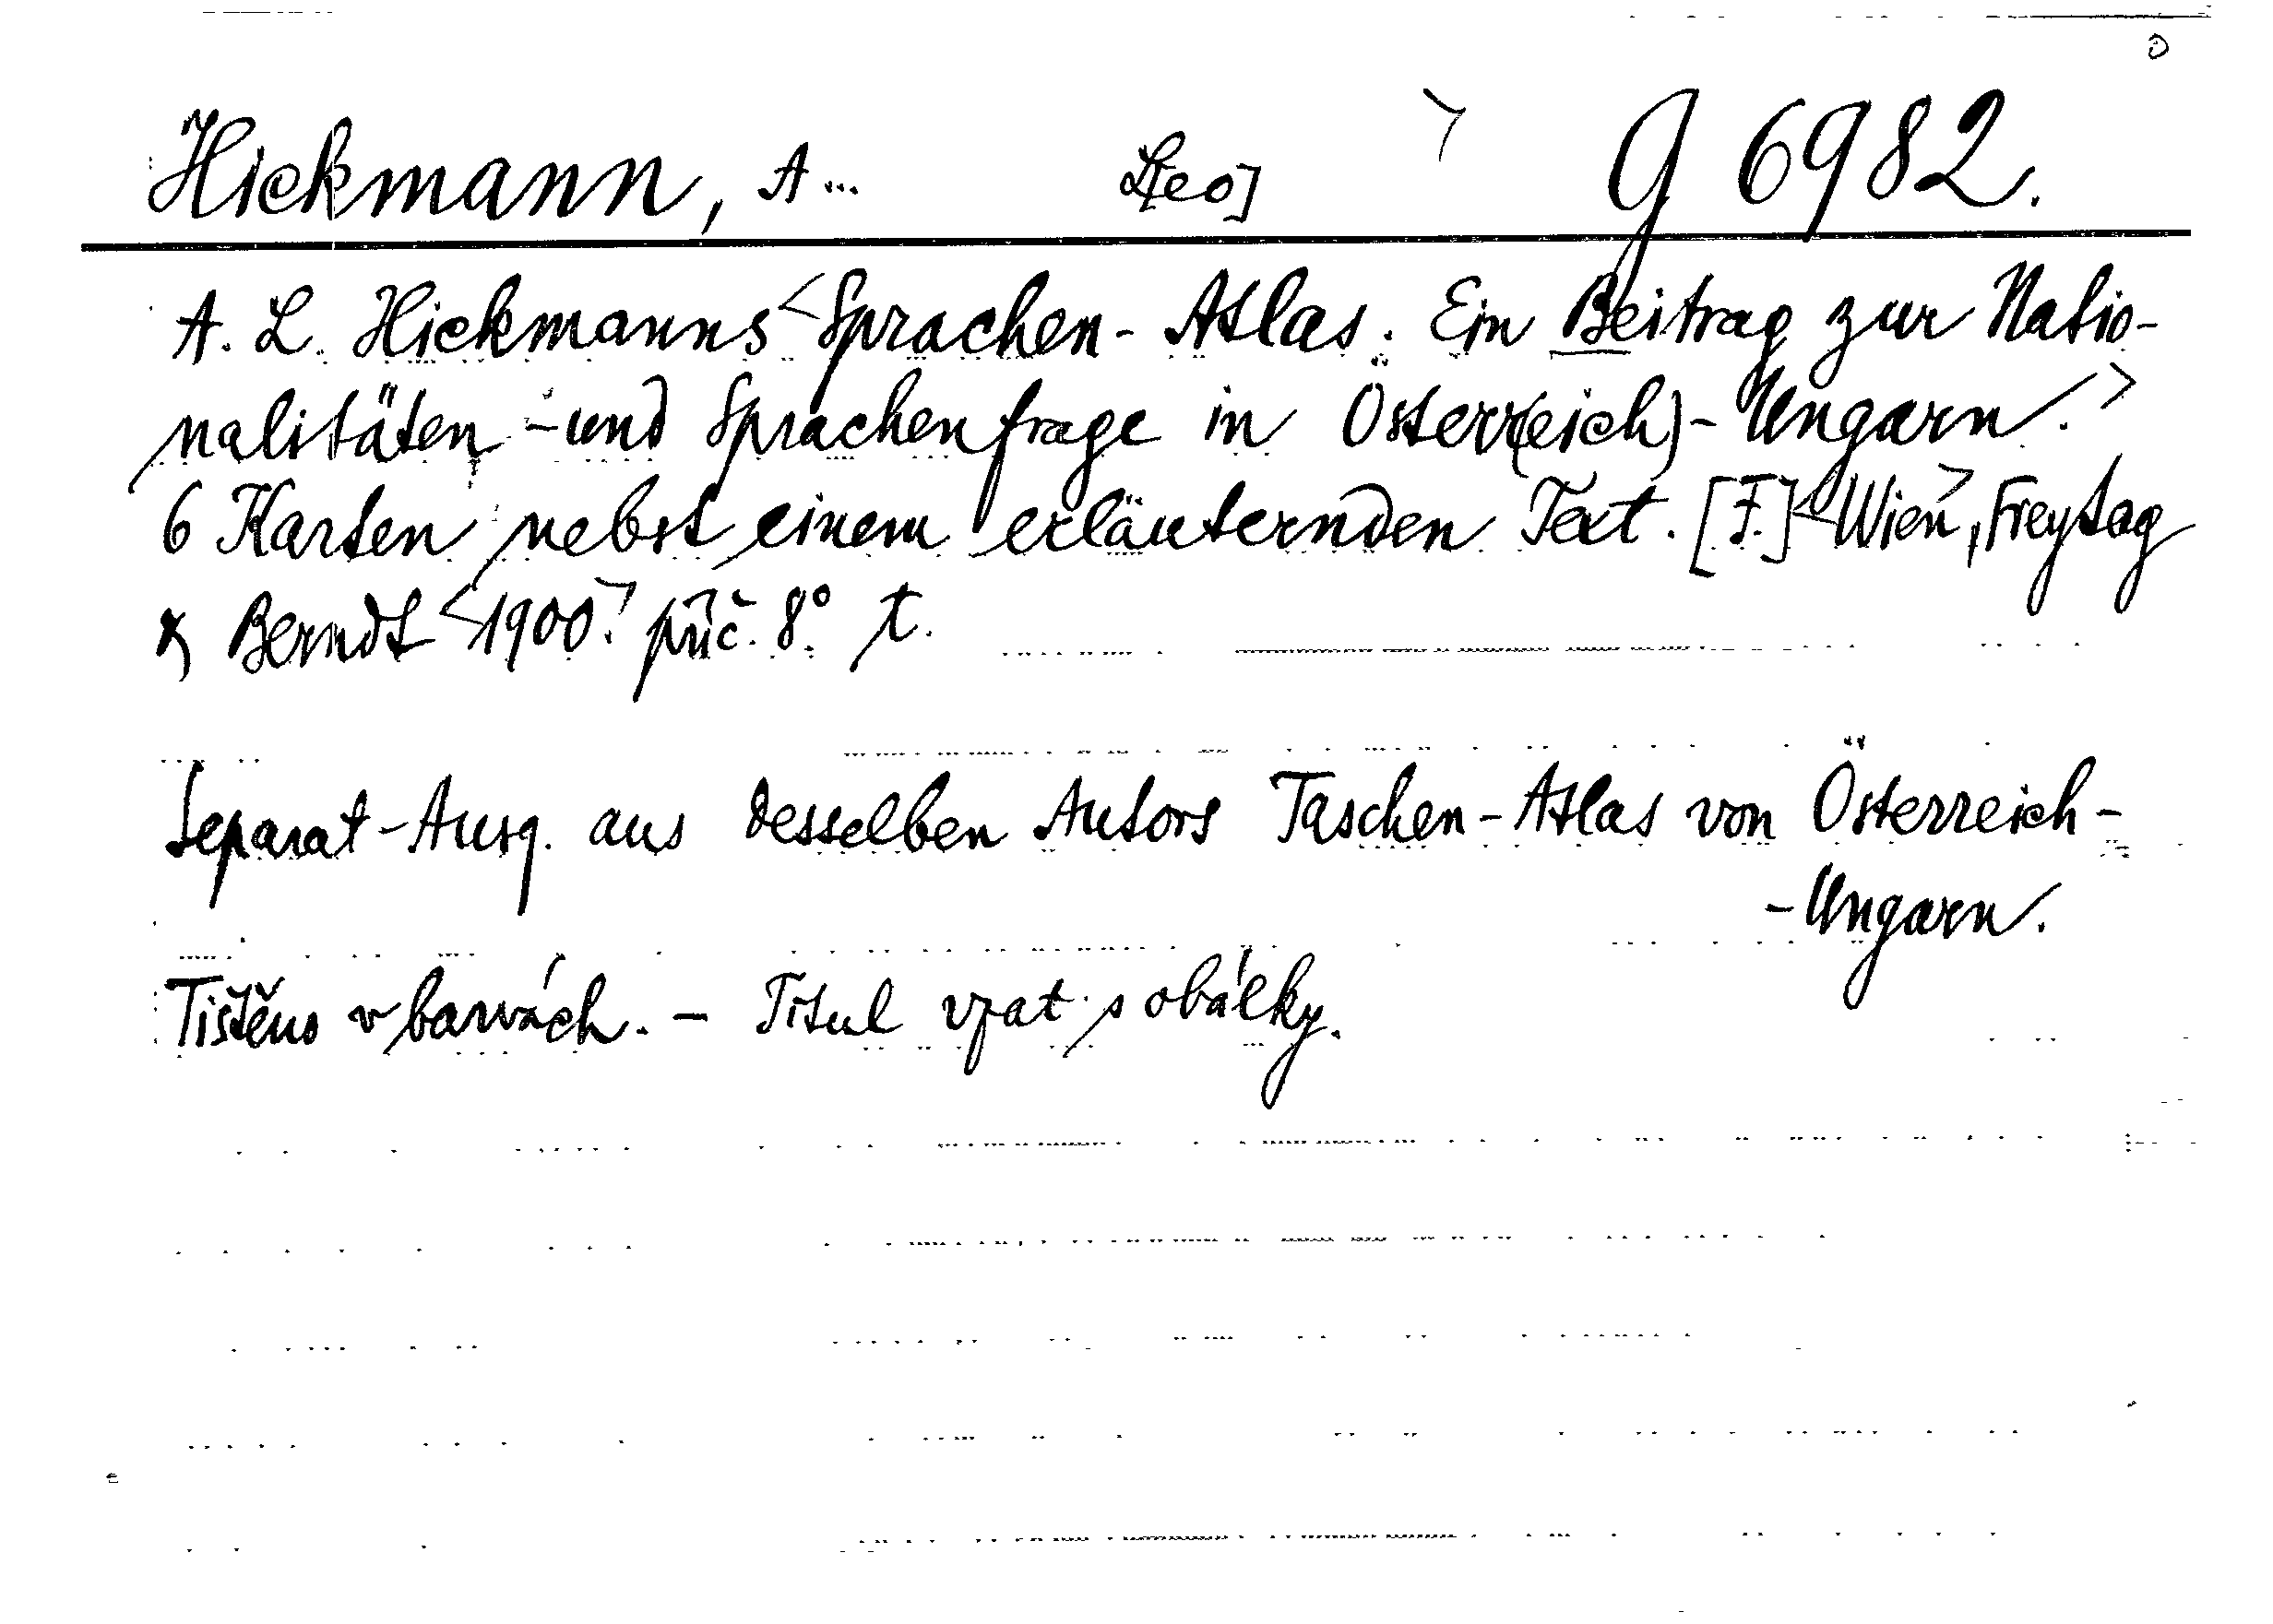 Hickmann, A... L[eo] g 6982.
A. L. Hickmanns <Sprachen-Atlas. Ein Beitrag zur Natio-
nalitäten - und Sprachenfrage in Österr(eich)-Ungarn.>
6 Karten nebst einem erläuternden Text. [F.] <Wien>, Freytag
& Berndt <1900.> příč. 8° t.
Separat-Ausg. aus desselben Autors Taschen-Atlas von Österreich-
-Ungarn.
Tištěno v barvách. - Titul vzat s obálky.